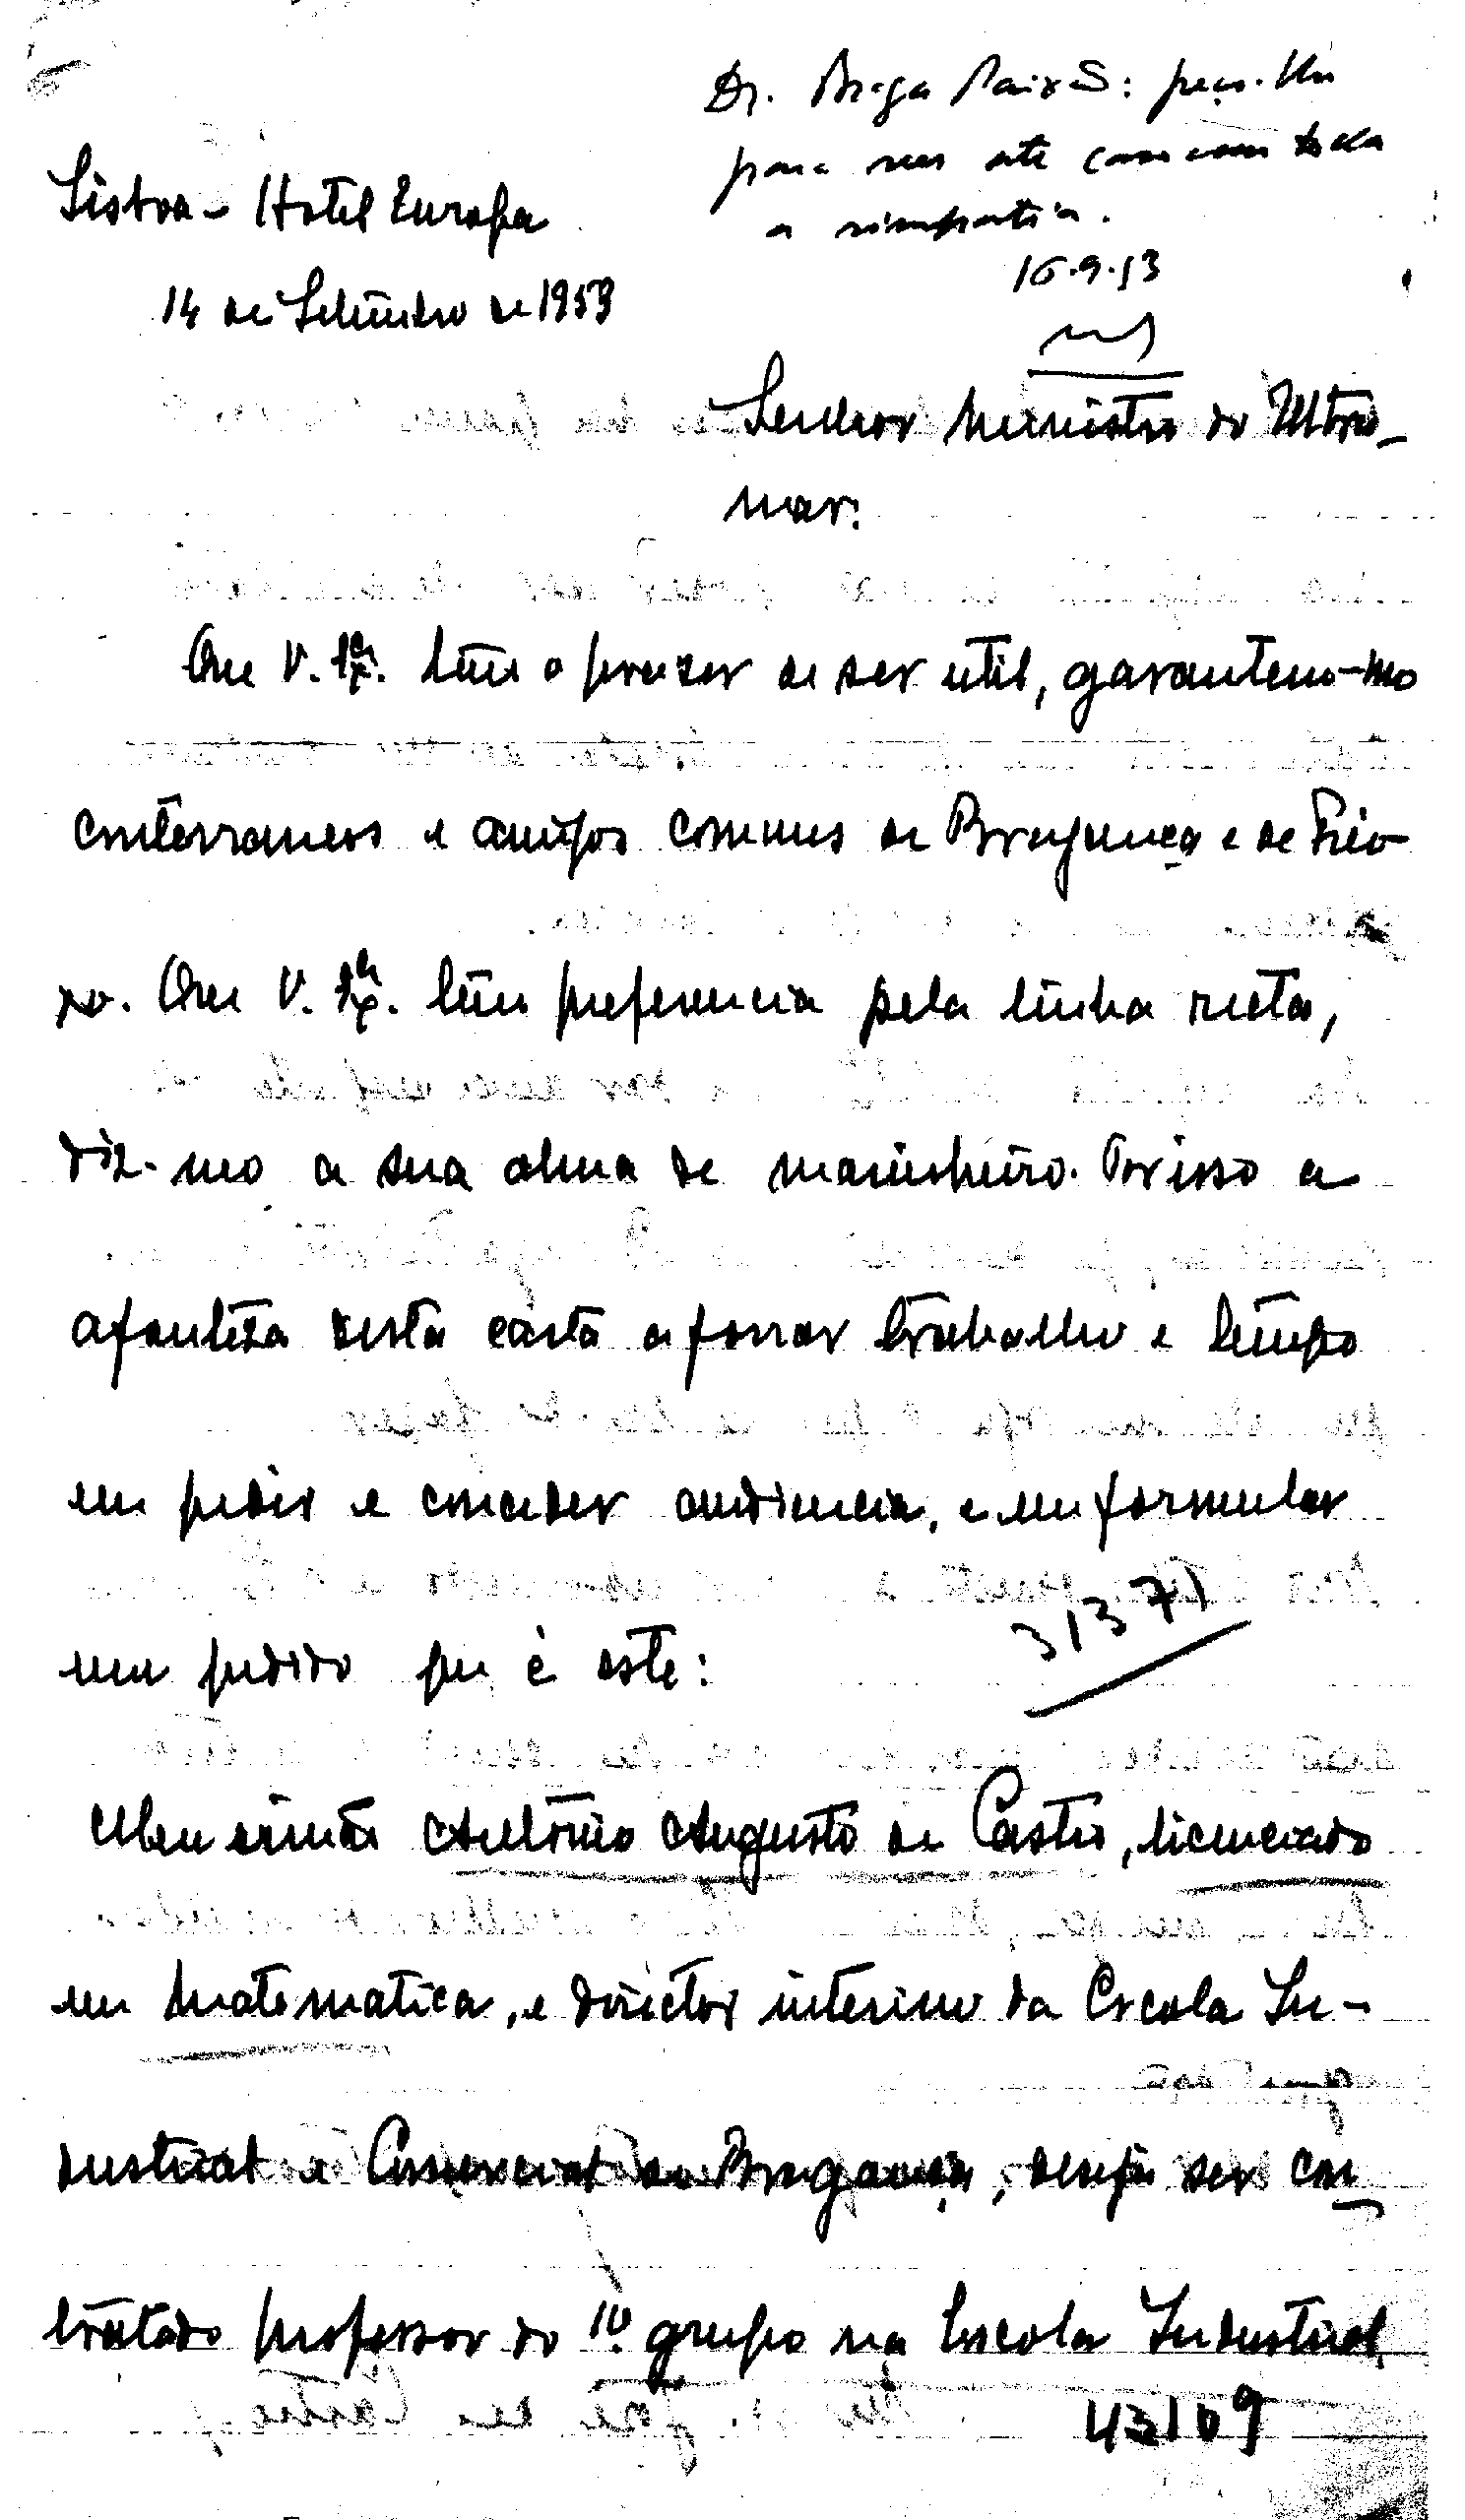 Dr. Braga Paixão: peço-lhe
para ver este caso com toda
a simpatia.
16.9.53
Lisboa - Hotel Europa
14 de Setembro de 1953
Senhor Ministro do Ultra-
mar:
Que V. Ex. tem o prazer de ser util, garantem-mo
conterraneos e amigos comuns de Bragança e de Frei-
xo. Que V. Ex. tem preferencia pela linha recta,
diz-mo a sua alma de marinheiro. Por isso a
afouteza desta carta a forrar trabalho e tempo
em pedir e conceder audiencia, e em formular
um pedido que é este:
31371
Meu irmão António Augusto de Castro, licenciado
em Matematica, e director interino da Escola In-
dustrial e Comercial de Bragança, deseja ser con-
tratado professor do 1º grupo na Escola Industrial
43109